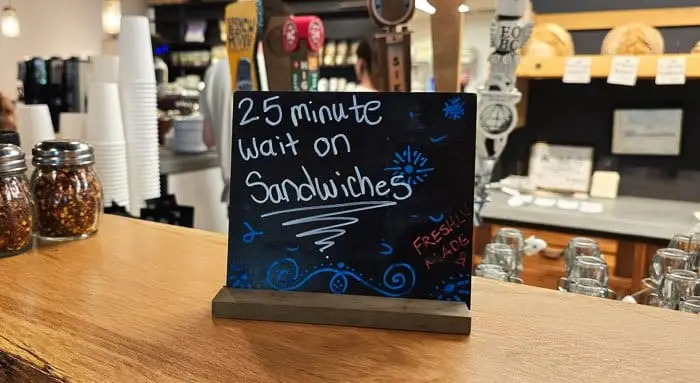 25 minute
wait on
Sandwiches
FRESHLY
MADE